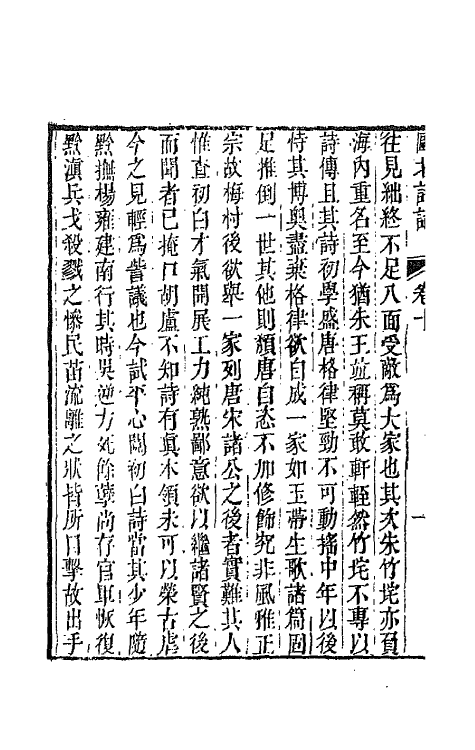 甌北詩話　卷十　一
往見絀終不足八面受敵爲大家也其次朱竹垞亦負
海內重名至今猶朱王並稱莫敢軒輊然竹垞不專以
詩傳且其詩初學盛唐格律堅勁不可動搖中年以後
恃其博奧盡棄格律欲自成一家如玉帶生歌諸篇固
足推倒一世其他則頹唐自恣不加修飾究非風雅正
宗故梅村後欲舉一家列唐宋諸公之後者實難其人
惟查初白才氣開展工力純熟鄙意欲以繼諸賢之後
而聞者已掩口胡盧不知詩有真本領未可以榮古虐
今之見輕爲訾議也今試平心閱初白詩當其少年隨
黔撫楊雍建南行其時吳逆方死餘孽尚存官軍恢復
黔滇兵戈殺戮之慘民苗流離之狀皆所目擊故出手